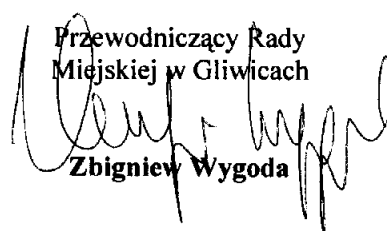 Przewodniczący Rady
Miejskiej w Gliwicach
Zbigniew Wygoda